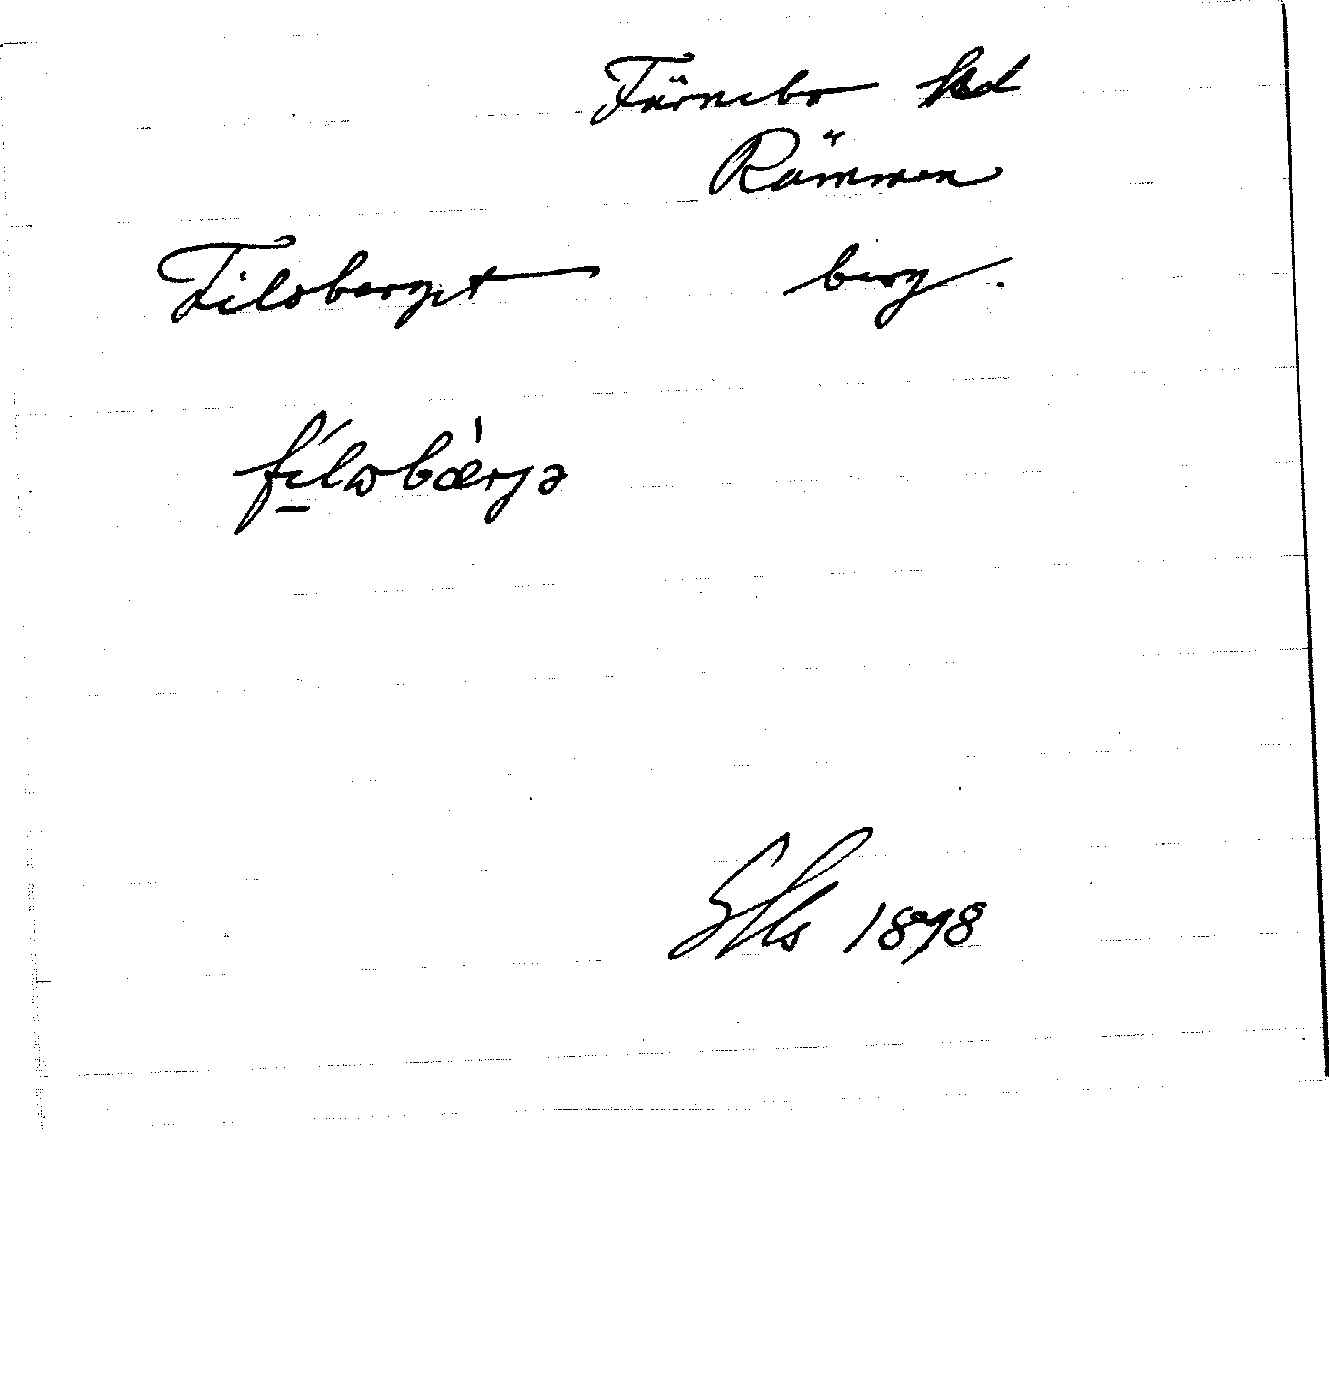 Färnebo hd
Rämmen
Filsberget berg.
fi̲lsbærjə
1898